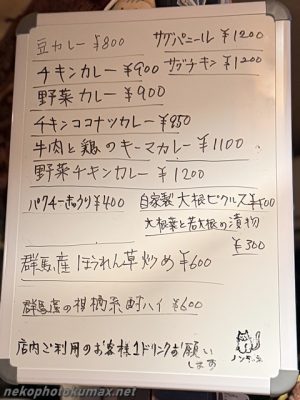 豆カレー ¥800
サグパニール ¥1200
チキンカレー ¥900
サグチキン ¥1200
野菜カレー ¥900
チキンココナツカレー ¥950
牛肉と鶏のキーマカレー ¥1100
野菜チキンカレー ¥1200
パクチー ¥400
自家製大根ピクルス ¥400
大根葉と若大根の漬物
¥300
群馬産ほうれん草炒め ¥600
群馬産の柑橘系酎ハイ ¥600
店内ご利用のお客様1ドリンクお願い
します
nekophotokumax.net